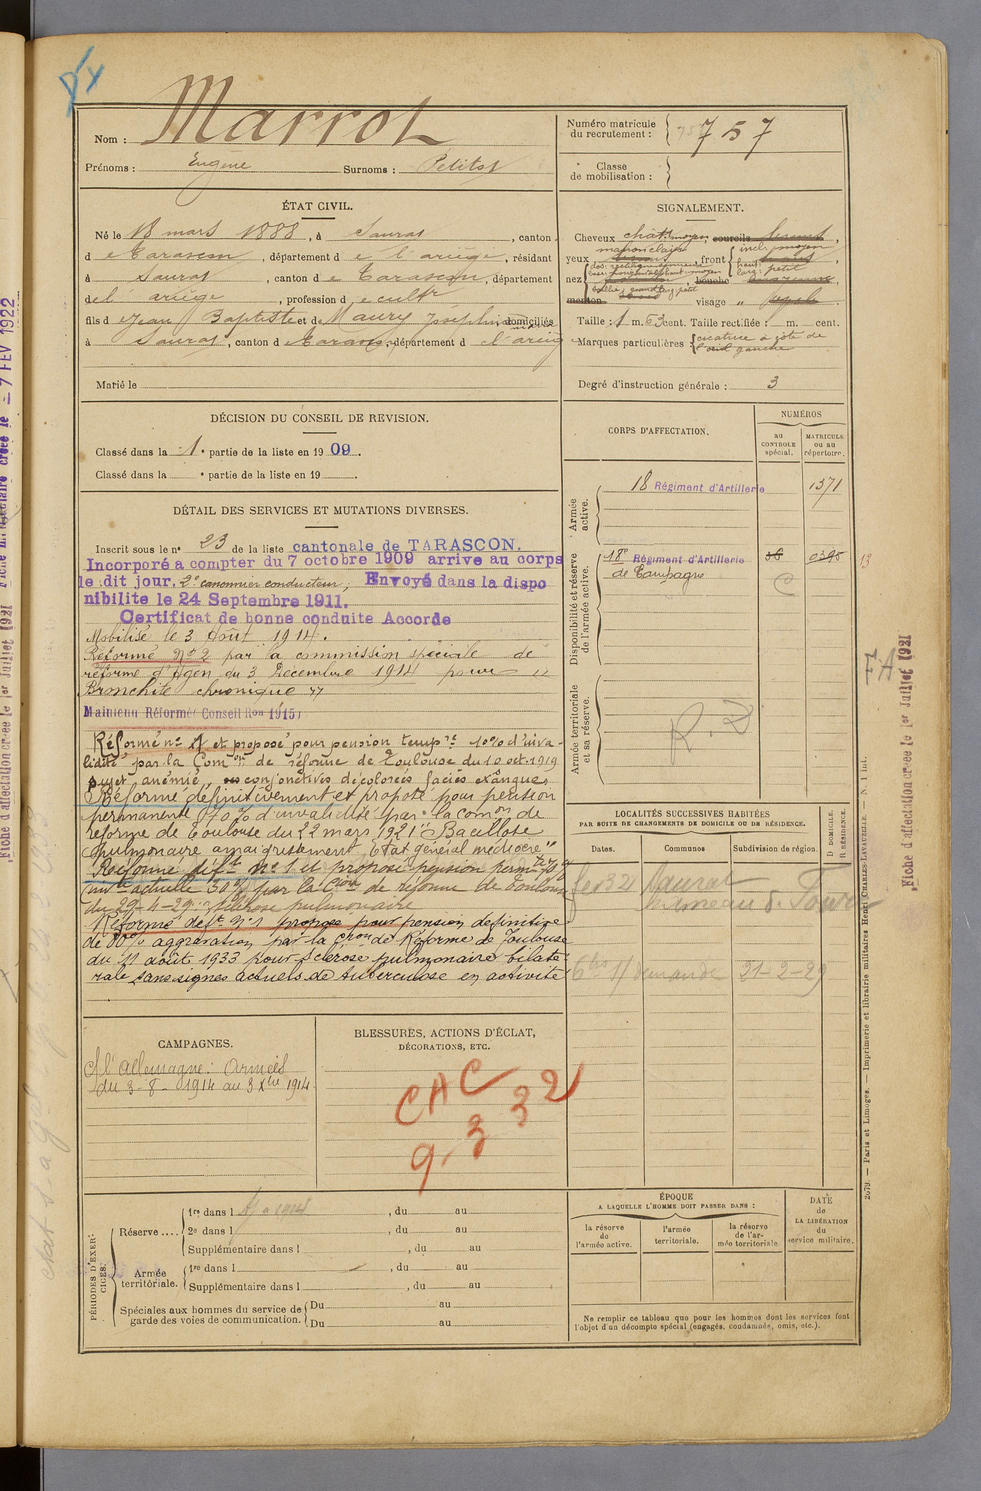 Nom : Marrot
Prénoms : Eugène Surnoms : Petitot
Numéro matricule
du recrutement : 757
Classe
de mobilisation :
ÉTAT CIVIL.
Né le 18 mars 1888, à Saurat, canton
d e Tarascon, département d e l'ariège, résidant
à Saurat, canton d e Tarascon, département
de l'ariège, profession d e cultr
fils d e Jean Baptiste et de Maury Joséphine domiciliés
à Saurat, canton d e Tarascon, département d e l'arieg
Marié le
SIGNALEMENT.
Cheveux chât. moyen, sourcils
yeux marron clairs front incl: moyen
nez bouche
menton visage
Taille : 1 m. 63 cent. Taille rectifiée : m. cent.
Marques particulières : cicatrice à côté de
l'œil gauche
Degré d'instruction générale : 3
DÉCISION DU CONSEIL DE REVISION.
Classé dans la 1e partie de la liste en 1909.
Classé dans la e partie de la liste en 19
CORPS D'AFFECTATION.
NUMÉROS
au
CONTROLE
spécial.
MATRICULE
ou au
répertoire.
Armée
active.
18 Régiment d'Artillerie 1371
Disponibilité et réserve
de l'armée active.
18e Régiment d'Artillerie
de Campagne
C
Armée territoriale
et sa réserve.
R. D
DÉTAIL DES SERVICES ET MUTATIONS DIVERSES.
Inscrit sous le no 23 de la liste cantonale de TARASCON.
Incorporé a compter du 7 octobre 1909 arrive au corps
le dit jour, 2e canonnier conducteur, Envoyé dans la dispo
nibilite le 24 Septembre 1911.
Certificat de bonne conduite Accorde
Mobilisé le 3 Août 1914.
Réformé No 2 par la commission spéciale de
réforme d'Agen du 3 Décembre 1914 pour "
Bronchite chronique "
Maintenu Réformé Conseil Ron 1915
Réformé no 1 et proposé pour pension tempre 10% d'inva-
lidité par la Comon de réforme de Toulouse du 10 oct. 1919
sujet anémié, conjonctives décolorées faciès exsangue
Réformé définitivement et proposé pour pension
permanente d'invalidité par la comon de
réforme de Toulouse du 22 mars 1921 "Bacillose
pulmonaire amaigrissement, Etat général médiocre"
Réformé déft No 1 et proposé pension permte
actuelle 50% par la Cion de réforme de Toulouse
du 29-4-29: sclérose pulmonaire
Réformé deft No 1 propose pour pension definitive
de 80% aggravation par la Con de Réforme de Toulouse
du 11 août 1933 pour sclerose pulmonaire bilaté
rale sans signes actuels de tuberculose en activité
LOCALITÉS SUCCESSIVES HABITÉES
PAR SUITE DE CHANGEMENTS DE DOMICILE OU DE RÉSIDENCE.
Dates. Communes Subdivision de région. D DOMICILE. R RÉSIDENCE.
fev 32 Saurat
hameau de
demande 31-2-29
CAMPAGNES.
C. l'Allemagne: Armées
du 3-8-1914 au 3 Xbre 1914
BLESSURES, ACTIONS D'ÉCLAT,
DÉCORATIONS, ETC.
CAC
9.3 32
PÉRIODES D'EXER-
CICES.
Réserve ....
1re dans l , du au
2e dans l , du au
Supplémentaire dans l , du au
Armée
territoriale.
1re dans l , du au
Supplémentaire dans l , du au
Spéciales aux hommes du service de
garde des voies de communication.
Du au
Du au
ÉPOQUE
A LAQUELLE L'HOMME DOIT PASSER DANS :
la réserve
de
l'armée active.
l'armée
territoriale.
la réserve
de l'ar-
mée territoriale
DATE
de
LA LIBÉRATION
du
service militaire.
Ne remplir ce tableau que pour les hommes dont les services font
l'objet d'un décompte spécial (engagés, condamnés, omis, etc.).
2079. — Paris et Limoges. — Imprimerie et librairie militaires Henri CHARLES-LAVAUZELLE. — N. 1 int.
FA
Fiche d'affectation créée le 1er Juillet 1921
Fiche d'affectation créée le 1er Juillet 1921
créée le - 7 FEV 1922